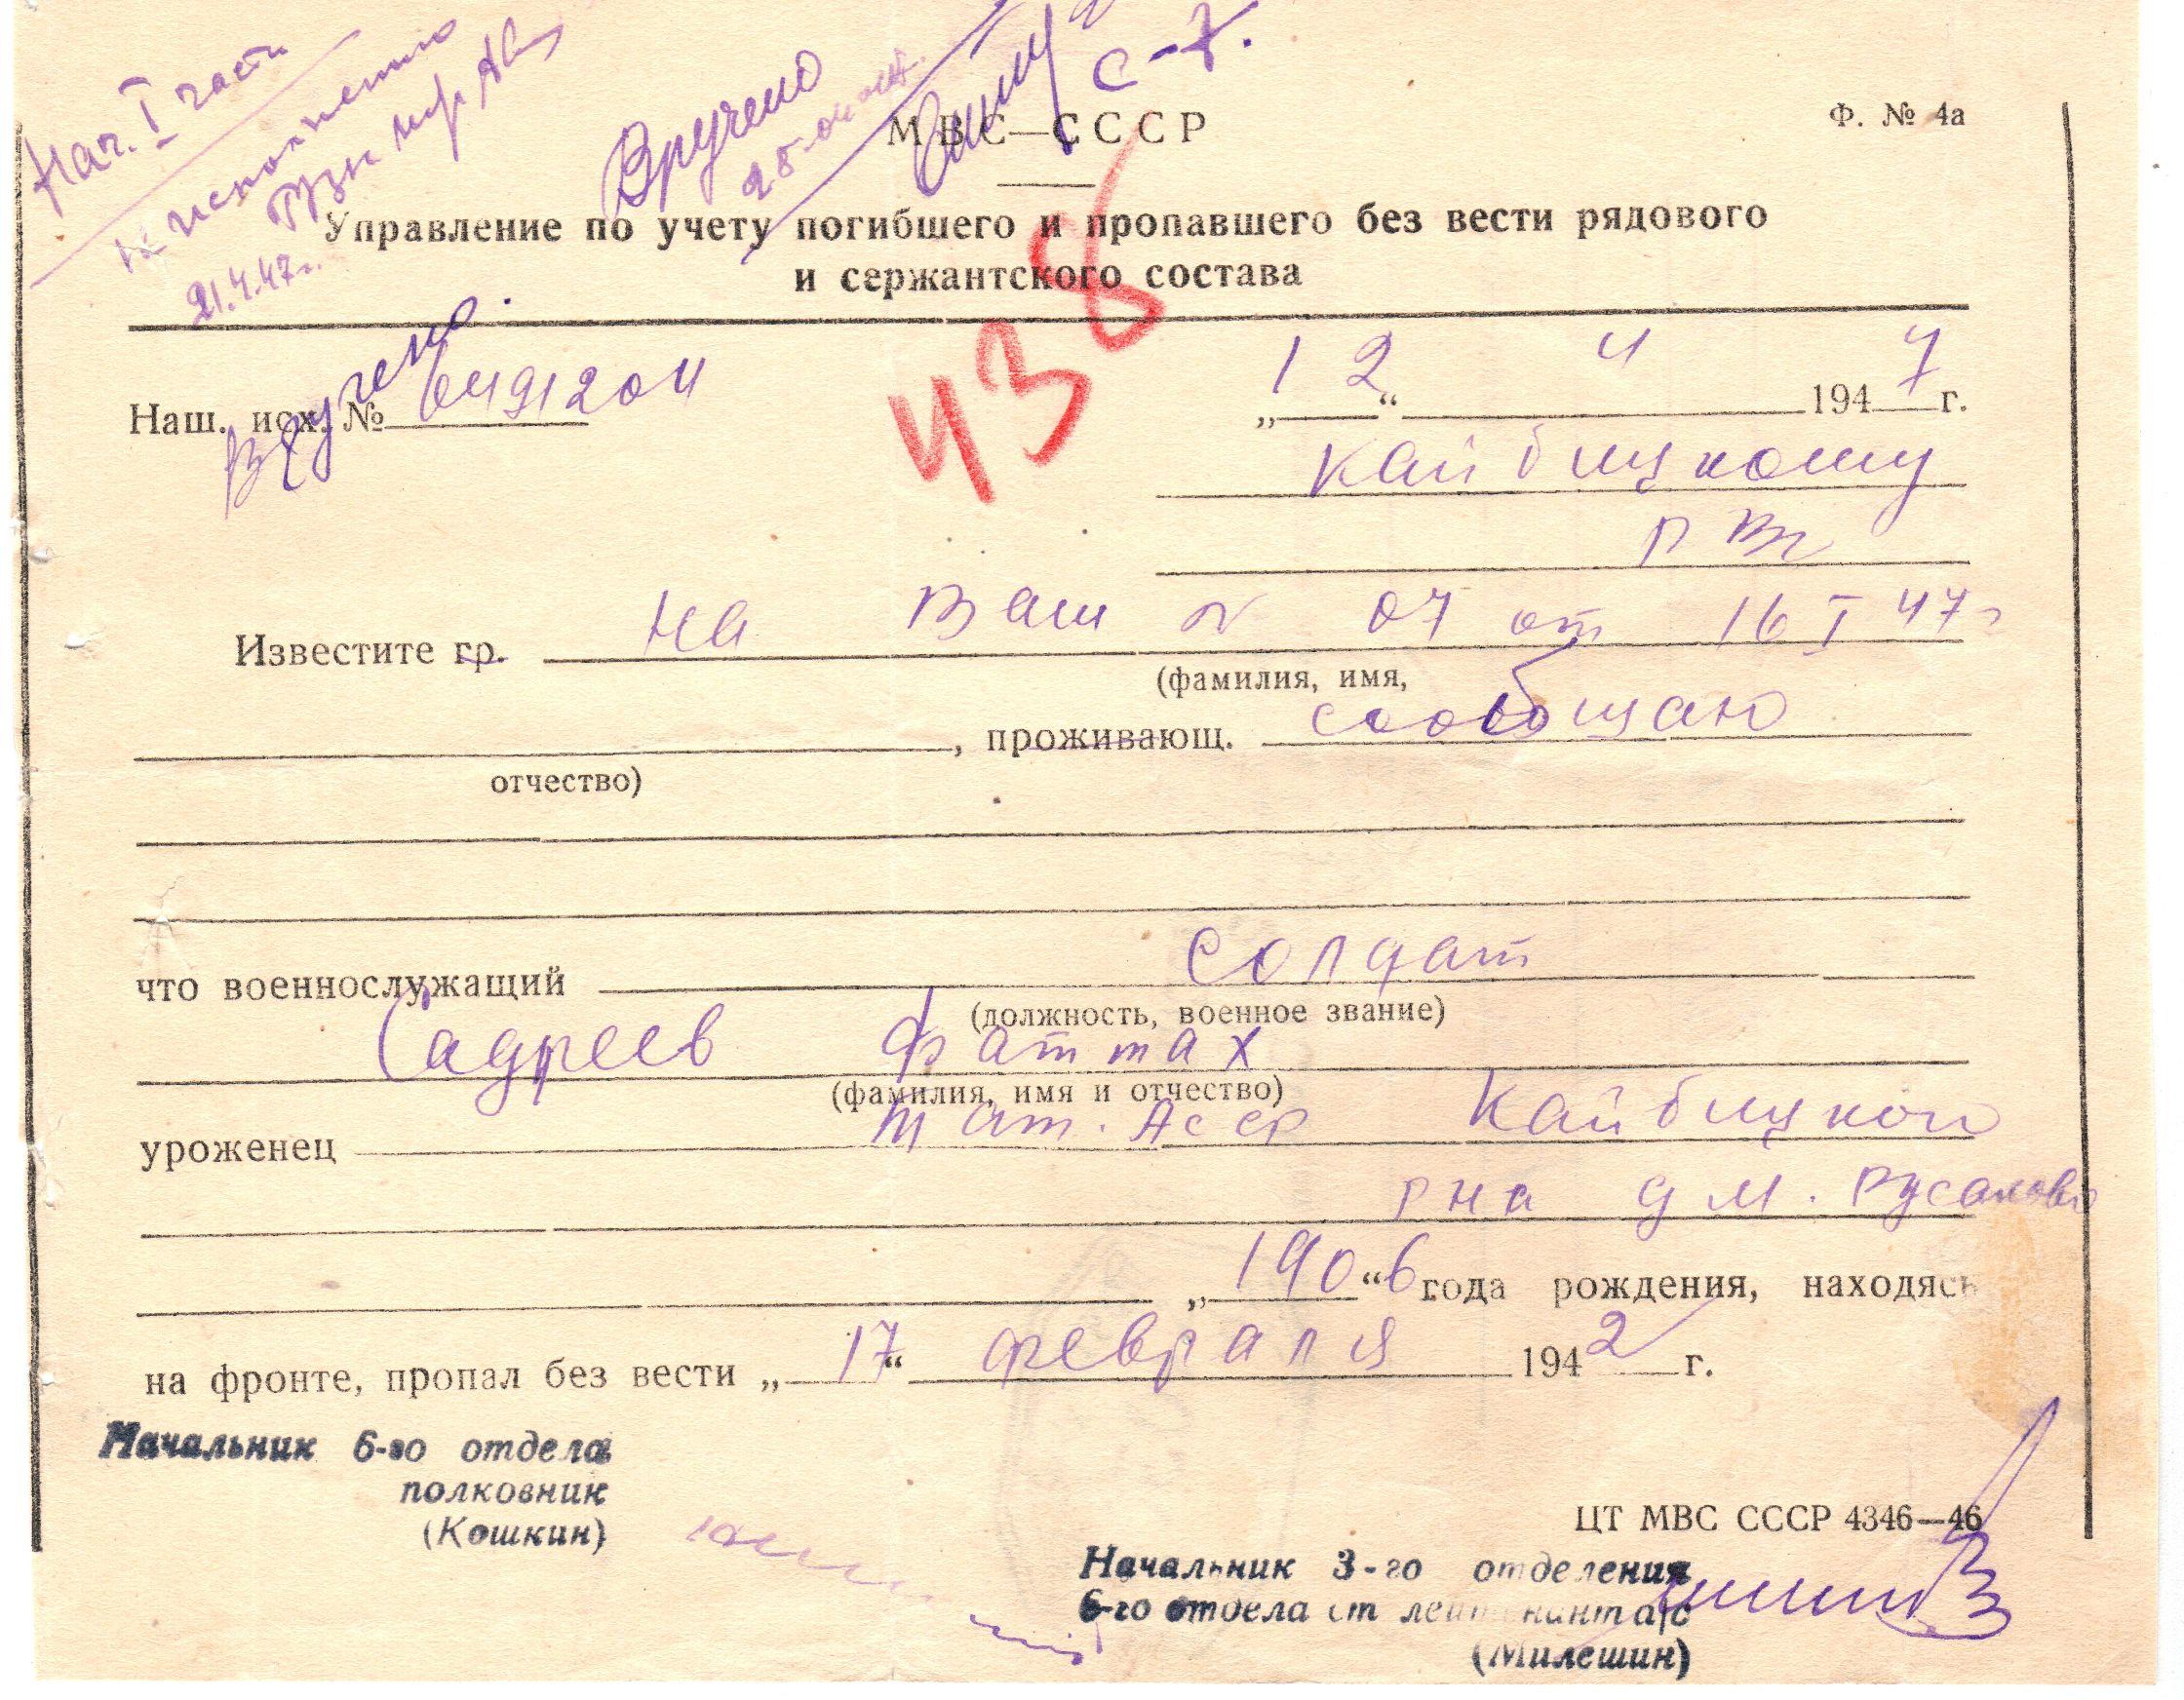 Нач. I части
к исполнению
21.4.47г.
Вручено
28
с-7.
МВС—СССР
Ф. № 4а
Управление по учету погибшего и пропавшего без вести рядового
и сержантского состава
Вручено.
438
Наш. исх. №
„12“ 4 1947 г.
Кайбицкому
РВК
Известите гр. На Ваш № 07 от 16 I 47г
(фамилия, имя,
, проживающ. сообщаю
отчество)
что военнослужащий солдат
(должность, военное звание)
Садреев Фаттах
(фамилия, имя и отчество)
уроженец Тат. АССР Кайбицкого
рна д М. Русаково
„1906“ года рождения, находясь
на фронте, пропал без вести „17“ февраля 1942 г.
Начальник 6-го отдела
полковник
(Кошкин)
ЦТ МВС СССР 4346—46
Начальник 3-го отделения
6-го отдела ст лейтенант а/с
(Милешин)